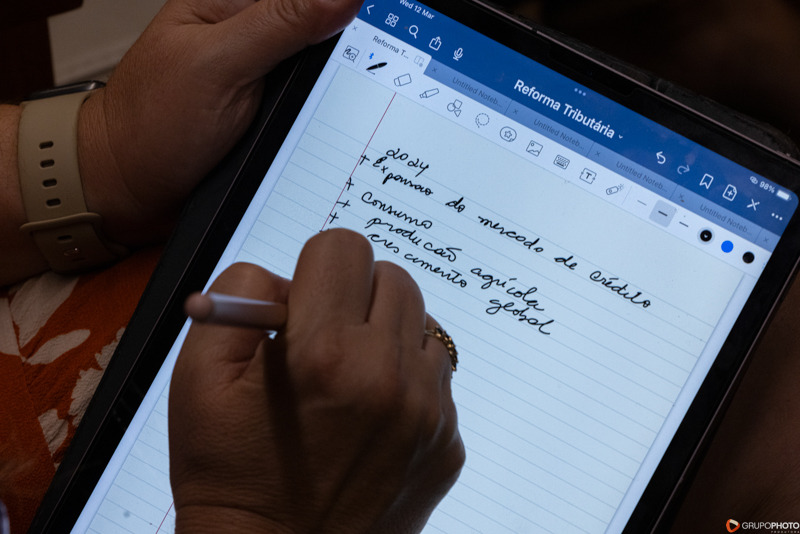 Wed 12 Mar
98%
Reforma Tributária
Reforma T...
Untitled Noteb...
Untitled Noteb...
Untitled Noteb...
Untitled Noteb...
2024
+ Expansão do mercado de crédito
+ Consumo
+ produção agrícola
crescimento global
GRUPOPHOTO